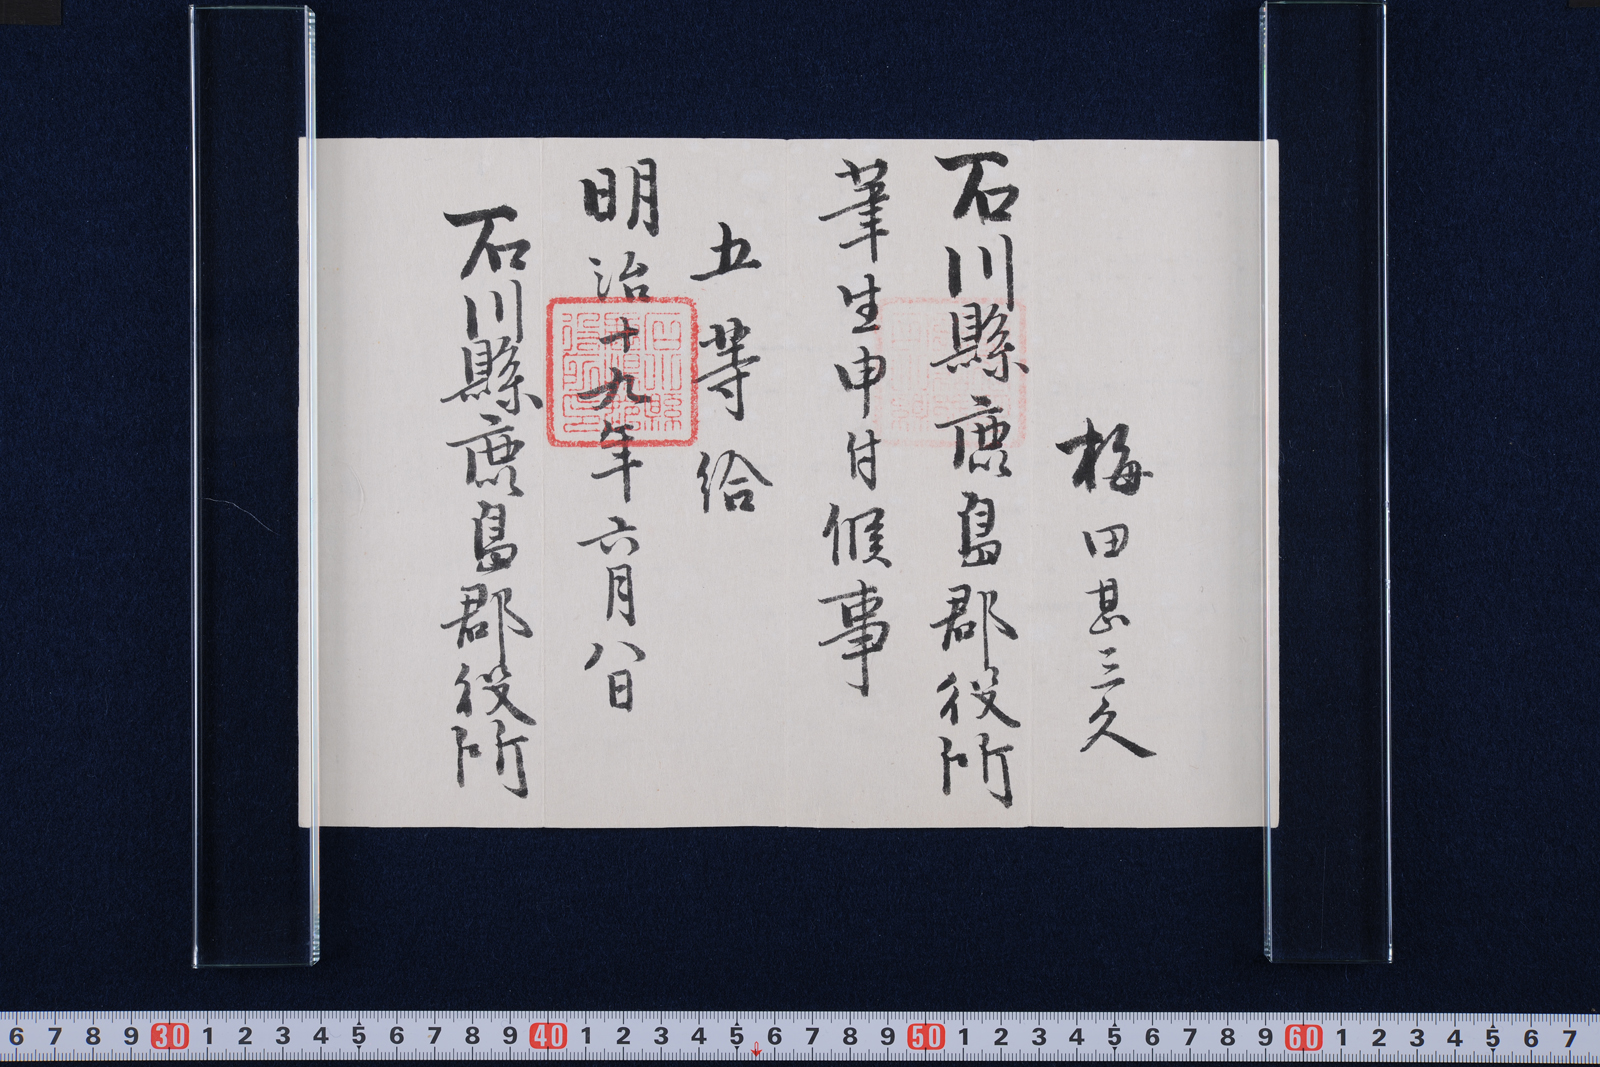 梅田甚三久
石川縣鹿島郡役所
筆生申付候事
五等給
明治十九年六月八日
石川縣鹿島郡役所
6 7 8 9 30 1 2 3 4 5 6 7 8 9 40 1 2 3 4 5 6 7 8 9 50 1 2 3 4 5 6 7 8 9 60 1 2 3 4 5 6 7